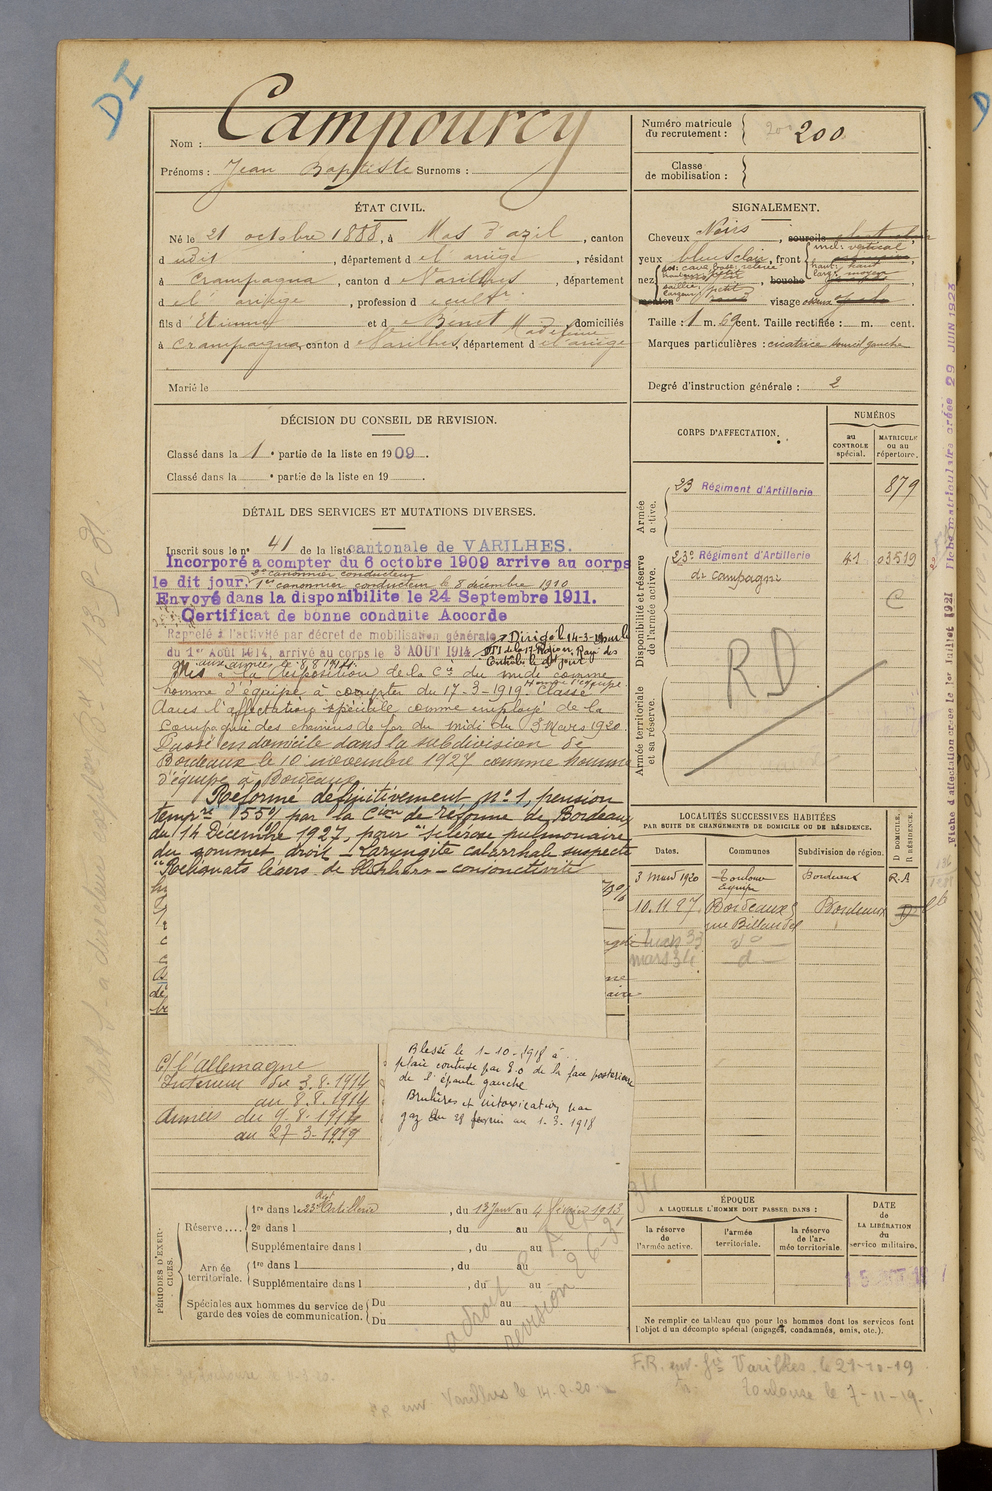 DI
Nom : Campourcy
Prénoms : Jean Baptiste Surnoms :
Numéro matricule du recrutement : 200
Classe de mobilisation :
ÉTAT CIVIL.
Né le 21 octobre 1888, à Mas d'azil, canton
dudit, département de l'ariège, résidant
à Crampagna, canton de Varilhes, département
de l'ariège, profession de cultr
fils d'Etienne et de Bénet Madeleine domiciliés
à Crampagna, canton de Varilhes, département de l'ariège
Marié le
SIGNALEMENT.
Cheveux Noirs, sourcils
yeux bleus clair, front incl: vertical
haut: haut
larg: moyen
nez dos: cave, base: relevée
hauteur: petit
saillie:
largeur: petit
bouche
menton visage osseux
Taille : 1 m. 69 cent. Taille rectifiée : m. cent.
Marques particulières : cicatrice sourcil gauche
Degré d'instruction générale : 2
DÉCISION DU CONSEIL DE REVISION.
Classé dans la 1e partie de la liste en 1909.
Classé dans la e partie de la liste en 19
DÉTAIL DES SERVICES ET MUTATIONS DIVERSES.
Inscrit sous le n° 41 de la liste cantonale de VARILHES.
Incorporé a compter du 6 octobre 1909 arrive au corps
le dit jour. 2e canonnier conducteur
1er canonnier conducteur le 8 décembre 1910
Envoyé dans la disponibilite le 24 Septembre 1911.
Certificat de bonne conduite Accorde
Rappelé à l'activité par décret de mobilisation générale
du 1er Août 1914, arrivé au corps le 3 AOUT 1914
aux armées le 8.8.1914.
Dirigé le 14-3-19 sur le
Rayé des
Contrôles le dit jour
Mis à la disposition de la Cie du midi comme
homme d'équipe à compter du 17-3-1919. Classé
dans l'affectation spéciale comme employé de la
Compagnie des chemins de fer du midi du 3 Mars 1920
Passé en domicile dans la subdivision de
Bordeaux le 10 novembre 1927 comme homme
d'équipe à Bordeaux
Réformé définitivement N° 1, pension
tempre 155% par la Cion de réforme de Bordeaux
du 14 Décembre 1927, pour "Sclérose pulmonaire
du sommet droit - Laryngite catarrhale suspecte
"Reliquats légers de blépharo-conjonctivite
C/ l'allemagne
Intérieur du 3.8.1914
au 8.8.1914
Armées du 9.8.1914
au 27-3-1919
Blessé le 1-10-1918 à
plaie contuse par E.O de la face postérieure
de l'épaule gauche
Brulures et intoxication par
gaz du 28 février au 1-3-1918
CORPS D'AFFECTATION.
NUMÉROS
au CONTROLE spécial.
MATRICULE ou au répertoire.
Armée active.
23 Régiment d'Artillerie 879
Disponibilité et réserve de l'armée active.
23e Régiment d'Artillerie 41 03519
de campagne C
Armée territoriale et sa réserve.
RD
LOCALITÉS SUCCESSIVES HABITÉES
PAR SUITE DE CHANGEMENTS DE DOMICILE OU DE RÉSIDENCE.
Dates. Communes Subdivision de région. D DOMICILE. R RÉSIDENCE.
3 Mars 1920 Toulouse Bordeaux R.A
10.11.27 Bordeaux Bordeaux
rue Billaudel
mars 34 d°
PÉRIODES D'EXERCICES.
Réserve....
1re dans le 23e d'Artillerie, du 17 Janv au 4 février 1913
2e dans l , du au
Supplémentaire dans l , du au
Armée territoriale.
1re dans l , du au
Supplémentaire dans l , du au
Spéciales aux hommes du service de garde des voies de communication.
Du au
Du au
ÉPOQUE
A LAQUELLE L'HOMME DOIT PASSER DANS :
la réserve de l'armée active.
l'armée territoriale.
la réserve de l'armée territoriale.
DATE de LA LIBÉRATION du service militaire.
Ne remplir ce tableau que pour les hommes dont les services font
l'objet d'un décompte spécial (engagés, condamnés, omis, etc.).
Fiche d'affectation créée le 1er Juillet 1921 Fiche matriculaire créée 29 JUIN 1923
F.R. env. Gie Varilhes le 21-10-19
Toulouse le 7-11-19
FR env Varilhes le 14-2-20